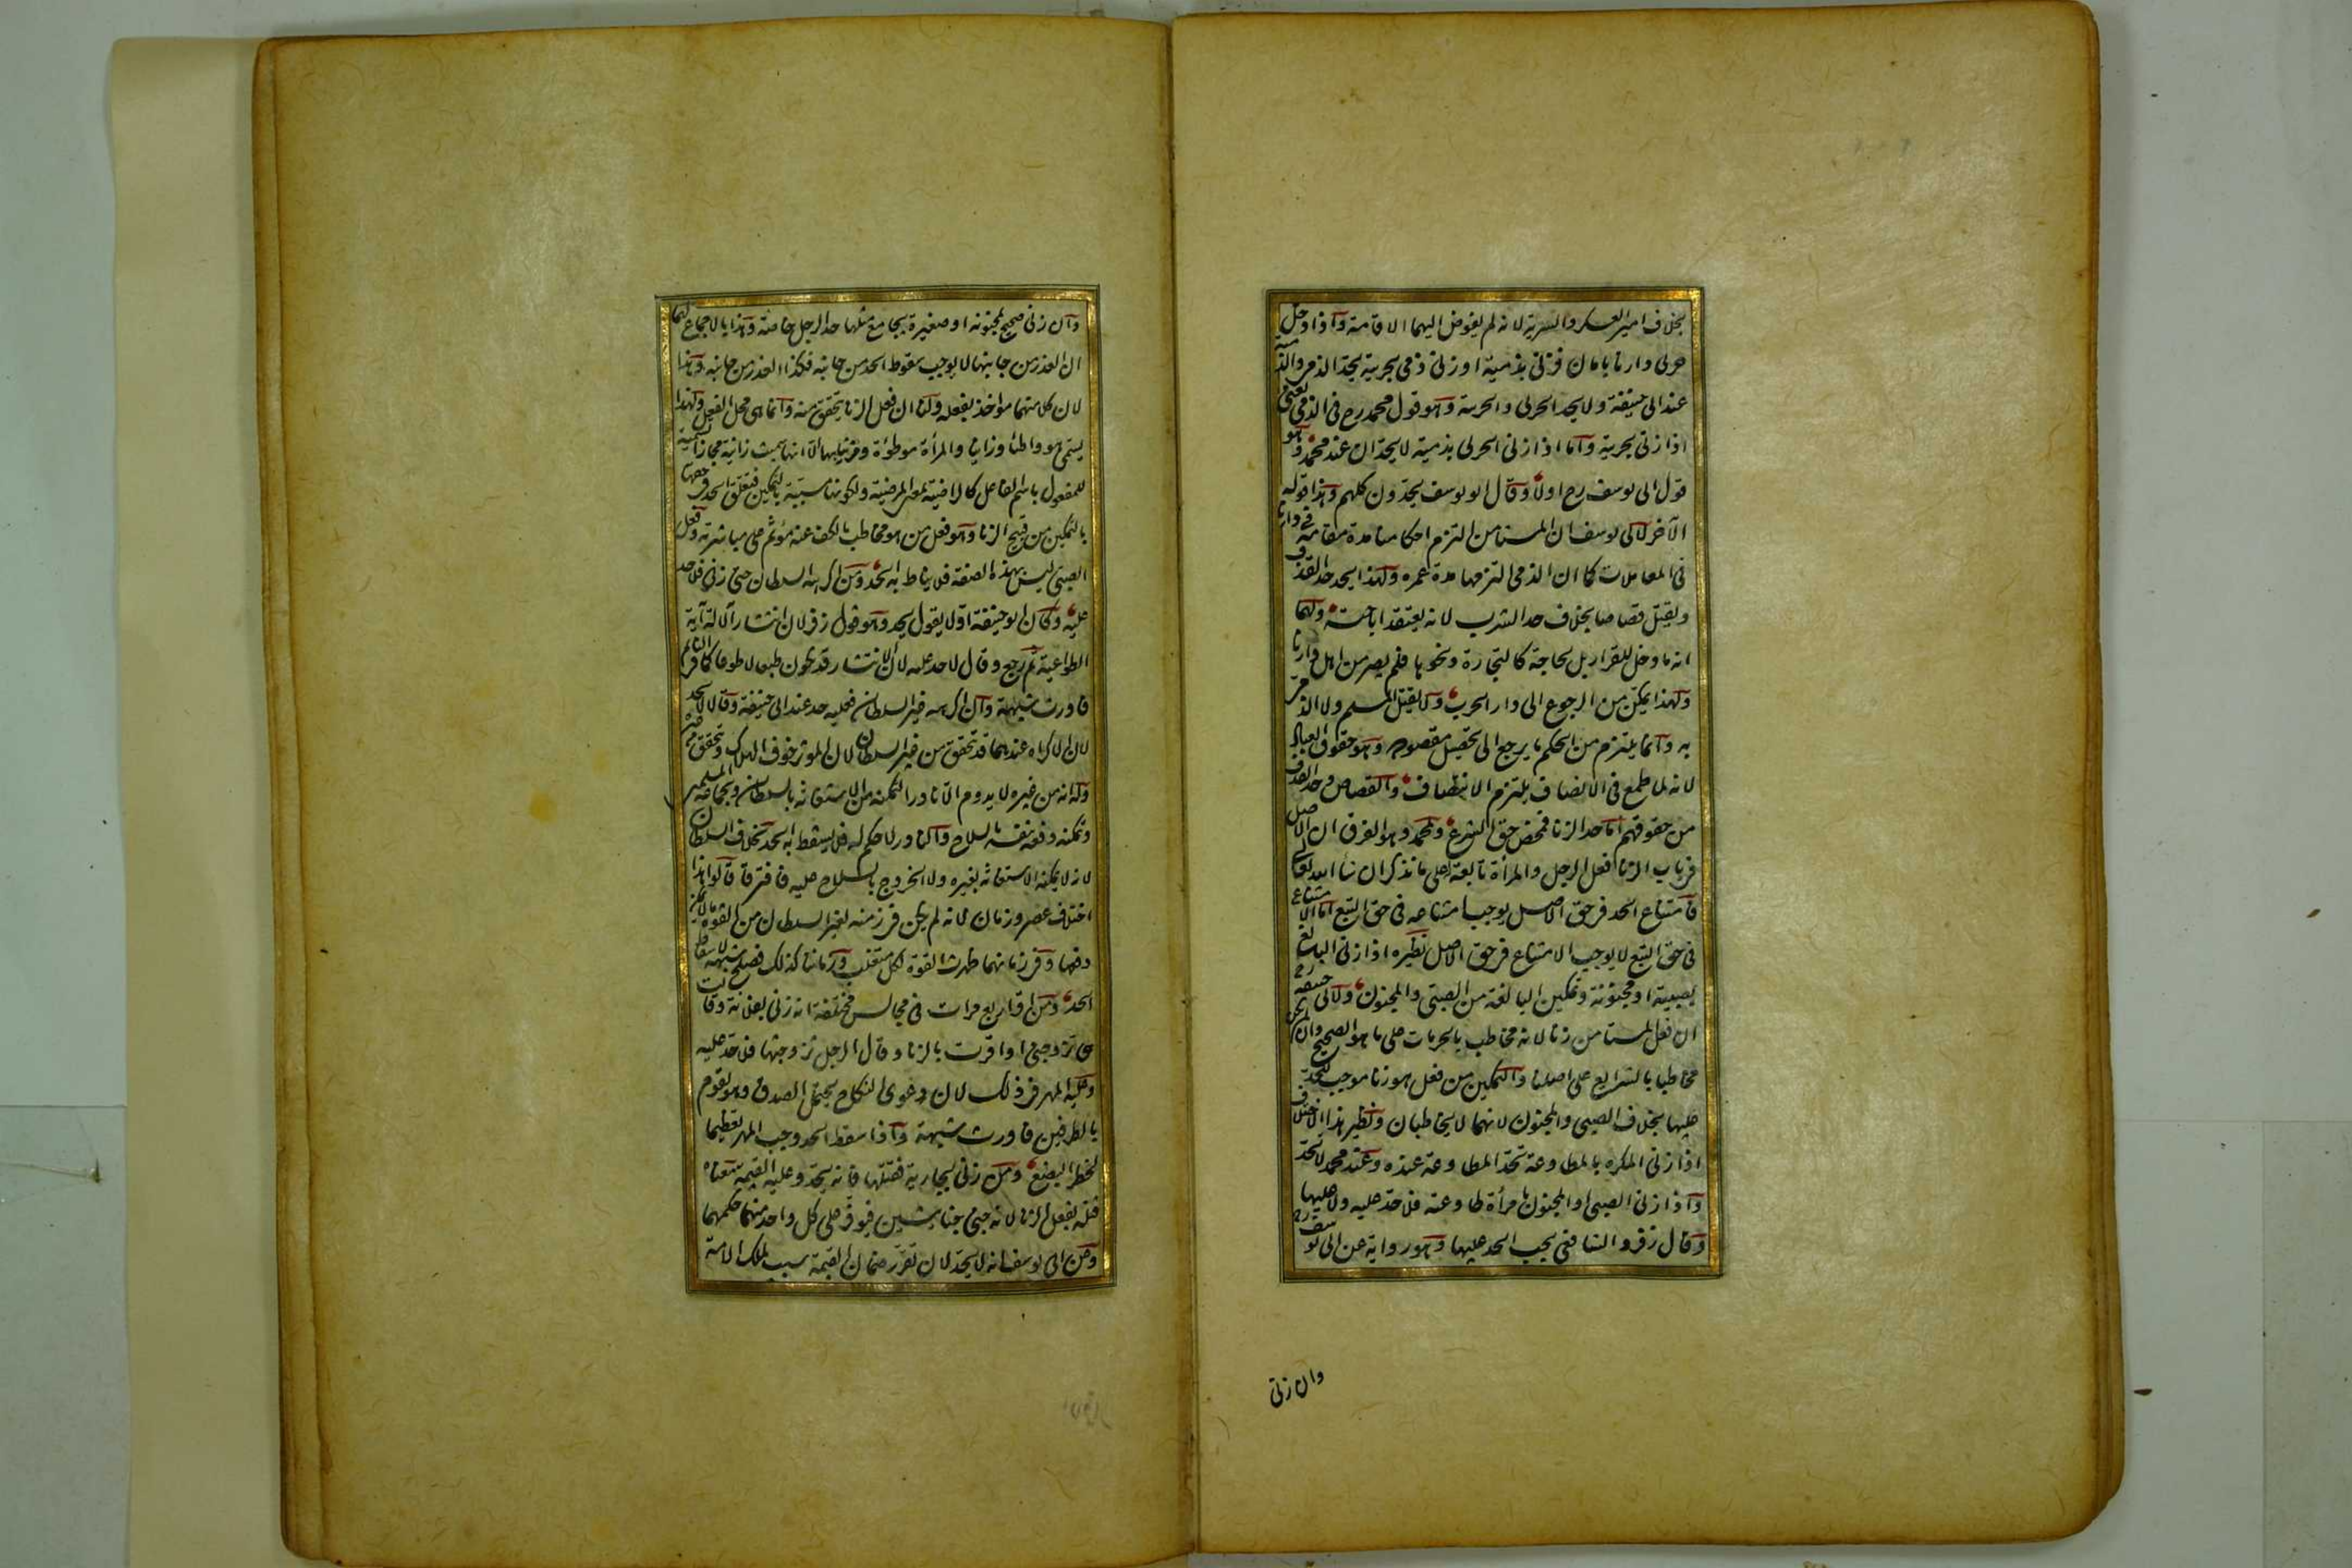 بخلاف امير العسكر والسرية لانه لم يفوض اليهما الاقامة واذا دخل
حربى دارنا بامان فزنى بذمية او زنى ذمى بحربية يحد الذمى والذمية
عند ابى حنيفة ولا يحد الحربى والحربية وهو قول محمد رح فى الذمى يعنى
اذا زنى بحربية واما اذا زنى الحربى بذمية لا يحدان عند محمد وهو
قول ابى يوسف رح اولا وقال ابو يوسف يحدون كلهم وهذا قوله
الآخر لابى يوسف ان المستامن التزم احكامنا مدة مقامه فى دارنا
فى المعاملات كما ان الذمى التزمها مدة عمره ولهذا يحد حد القذف
ويقتل قصاصا بخلاف حد الشرب لانه يعتقد اباحته ولهما
انه ما دخل للقرار بل لحاجة كالتجارة ونحوها فلم يصر من اهل دارنا
ولهذا يمكن من الرجوع الى دار الحرب ولا يقتل المسلم ولا الذمى
به وانما يلتزم من الحكم ما يرجع الى تحصيل مقصوده وهو حقوق العباد
لانه لما طمع فى الانصاف يلتزم الانتصاف والقصاص وحد القذف
من حقوقهم اما حد الزنا فمحض حق الشرع ولمحمد وهو الفرق ان الاصل
فى باب الزنا فعل الرجل والمرأة تابعة على ما نذكر ان شا الله تعالى
فامتناع الحد فى حق الاصل يوجب امتناعه فى حق التبع اما الامتناع
فى حق التبع لا يوجب الامتناع فى حق الاصل نظيره اذا زنى البالغ
بصبية او مجنونة وتمكين البالغة من الصبى والمجنون ولابى حنيفة رح
ان فعل المستامن زنا لانه مخاطب بالحرمات على ما هو الصحيح وان لم يكن
مخاطبا بالشرايع على اصلنا والتمكين من فعل هو زنا موجب للحد
عليها بخلاف الصبى والمجنون لانهما لا يخاطبان ونظير هذا الاختلاف
اذا زنى المكره بالمطاوعة تحد المطاوعة عنده وعند محمد لا تحد
واذا زنى الصبى او المجنون بامرأة طاوعته فلا حد عليه ولا عليها
وقال زفر والشافعى يجب الحد عليها وهو رواية عن ابى يوسف رح
وان زنى
وان زنى صحيح بمجنونة او صغيرة يجامع مثلها حد الرجل خاصة وهذا بالاجماع لهما
ان العذر من جانبها لا يوجب سقوط الحد من جانبه فكذا العذر من جانبه وهذا
لان كلا منهما مواخذ بفعله ولنا ان فعل الزنا يتحقق منه وانما هى محل الفعل ولهذا
يسمى هو واطئا وزانيا والمرأة موطوأة ومزنيا بها الا انها سميت زانية مجازا تسمية
للمفعول باسم الفاعل كالراضية بمعنى المرضية ولكونها مسببة بالتمكين فتعلق الحد فى حقها
بالتمكين من قبيح الزنا وهو فعل من هو مخاطب بالكف عنه موثم على مباشرته وفعل
الصبى ليس بهذه الصفة فلا يناط به الحد ومن اكرهه السلطان حتى زنى فلا حد
عليه وكان ابو حنيفة اولا يقول يحد وهو قول زفر لان انتشار الآلة آية
الطواعية ثم رجع وقال لا حد عليه لان الانتشار قد يكون طبعا لا طوعا كما فى النائم
فاورث شبهة وان اكرهه غير السلطان فعليه حد عند ابى حنيفة وقالا لا يحد
لان الاكراه عندهما قد تحقق من غير السلطان لان الموثر خوف الهلاك وتحقق من غيره
وله انه من غيره لا يدوم الا نادرا لتمكنه من الاستعانة بالسلطان وبجماعة المسلمين
وتمكنه دفعه بنفسه بالسلاح والنادر لا حكم له فلا يسقط به الحد بخلاف السلطان
لانه لا يمكنه الاستعانة بغيره ولا الخروج بالسلاح عليه فافترقا قالوا هذا
اختلاف عصر وزمان لانه لم يكن فى زمنه لغير السلطان من القوة ما لا يمكن
دفعها وفى زمانهما ظهرت القوة لكل متغلب وزماننا كذلك فصلح شبهة لاسقاط
الحد ومن اقر اربع مرات فى مجالس مختلفة انه زنى بفلانة وقالت
هى تزوجنى او اقرت بالزنا وقال الرجل تزوجتها فلا حد عليه
وعليه المهر فى ذلك لان دعوى النكاح يحتمل الصدق وهو يقوم
بالطرفين فاورث شبهة واذا سقط الحد وجب المهر تعظيما
لخطر البضع ومن زنى بجارية فقتلها فانه يحد وعليه القيمة معناه
قتله بفعل الزنا لانه جنى جنايتين فيوفر على كل واحد منهما حكمهما
وعن ابى يوسف انه لا يحد لان تقرر ضمان القيمة سبب لملك الامة